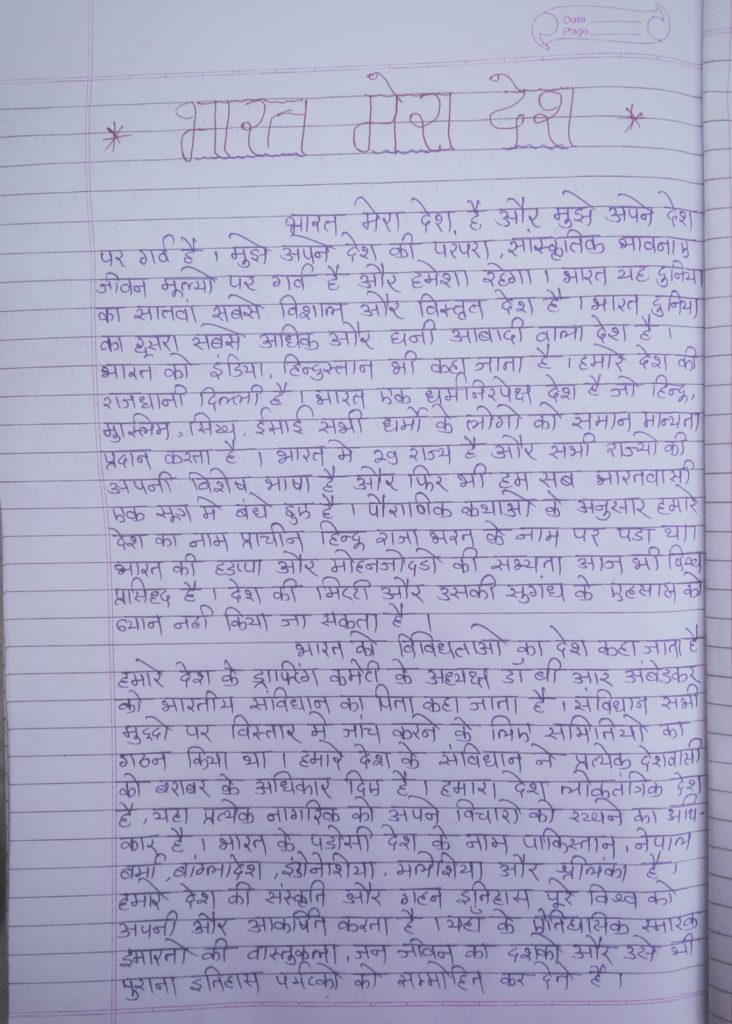 Date
Page
* भारत मेरा देश *
भारत मेरा देश है और मुझे अपने देश
पर गर्व है । मुझे अपने देश की परंपरा, सांस्कृतिक भावनाए
जीवन मूल्यो पर गर्व है और हमेशा रहेगा । भारत यह दुनिया
का सातवां सबसे विशाल और विस्तृत देश है । भारत दुनिया
का दूसरा सबसे अधिक और घनी आबादी वाला देश है ।
भारत को इंडिया, हिन्दुस्तान भी कहा जाता है । हमारे देश की
राजधानी दिल्ली है । भारत एक धर्मनिरपेक्ष देश है जो हिन्दू,
मुस्लिम, सिख, ईसाई सभी धर्मो के लोगो को समान मान्यता
प्रदान करता है । भारत मे २९ राज्य है और सभी राज्यो की
अपनी विशेष भाषा है और फिर भी हम सब भारतवासी
एक सूत्र मे बंधे हुए है । पौराणिक कथाओ के अनुसार हमारे
देश का नाम प्राचीन हिन्दू राजा भरत के नाम पर पडा था।
भारत की हडप्पा और मोहनजोदडो की सभ्यता आज भी विश्व
प्रसिध्द है । देश की मिट्टी और उसकी सुगंध के एहसास को
ब्यान नही किया जा सकता है ।
भारत को विविधताओ का देश कहा जाता है
हमारे देश के ड्राफ्टिंग कमेटी के अध्यक्ष डॉ बी आर अंबेडकर
को भारतीय संविधान का पिता कहा जाता है । संविधान सभी
मुद्दो पर विस्तार मे जांच करने के लिए समितियो का
गठन किया था । हमारे देश के संविधान ने प्रत्येक देशवासी
को बराबर के अधिकार दिए है । हमारा देश लोकतंत्रिक देश
है, यहा प्रत्येक नागरिक को अपने विचारो को रखने का अधि-
कार है । भारत के पडोसी देश के नाम पाकिस्तान, नेपाल
बर्मा, बांग्लादेश, इंडोनेशिया, मलेशिया और श्रीलंका है ।
हमारे देश की संस्कृति और गहन इतिहास पूरे विश्व को
अपनी और आकर्षित करता है । यहा के ऐतिहासिक स्मारक
इमारतो की वास्तुकला, जन जीवन का दशको और उसे भी
पुराना इतिहास पर्यटको को सम्मोहित कर देते है ।